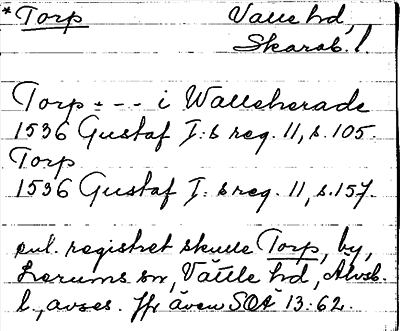 *Torp Valle hd,
Skarab. l.
Torp - - - i Walleherade
1536 Gustaf I:s reg. 11, s. 105.
Torp
1536 Gustaf I:s reg. 11, s. 157.
enl. registret skulle Torp, by,
Lerums sn, Vättle hd, Älvsb.
l., avses. Jfr även SOÄ 13:62.